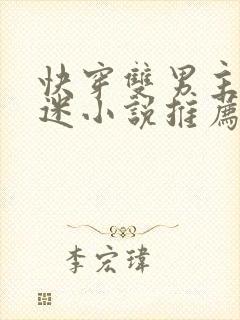 快穿雙男主
迷小說推薦
李宏瑋